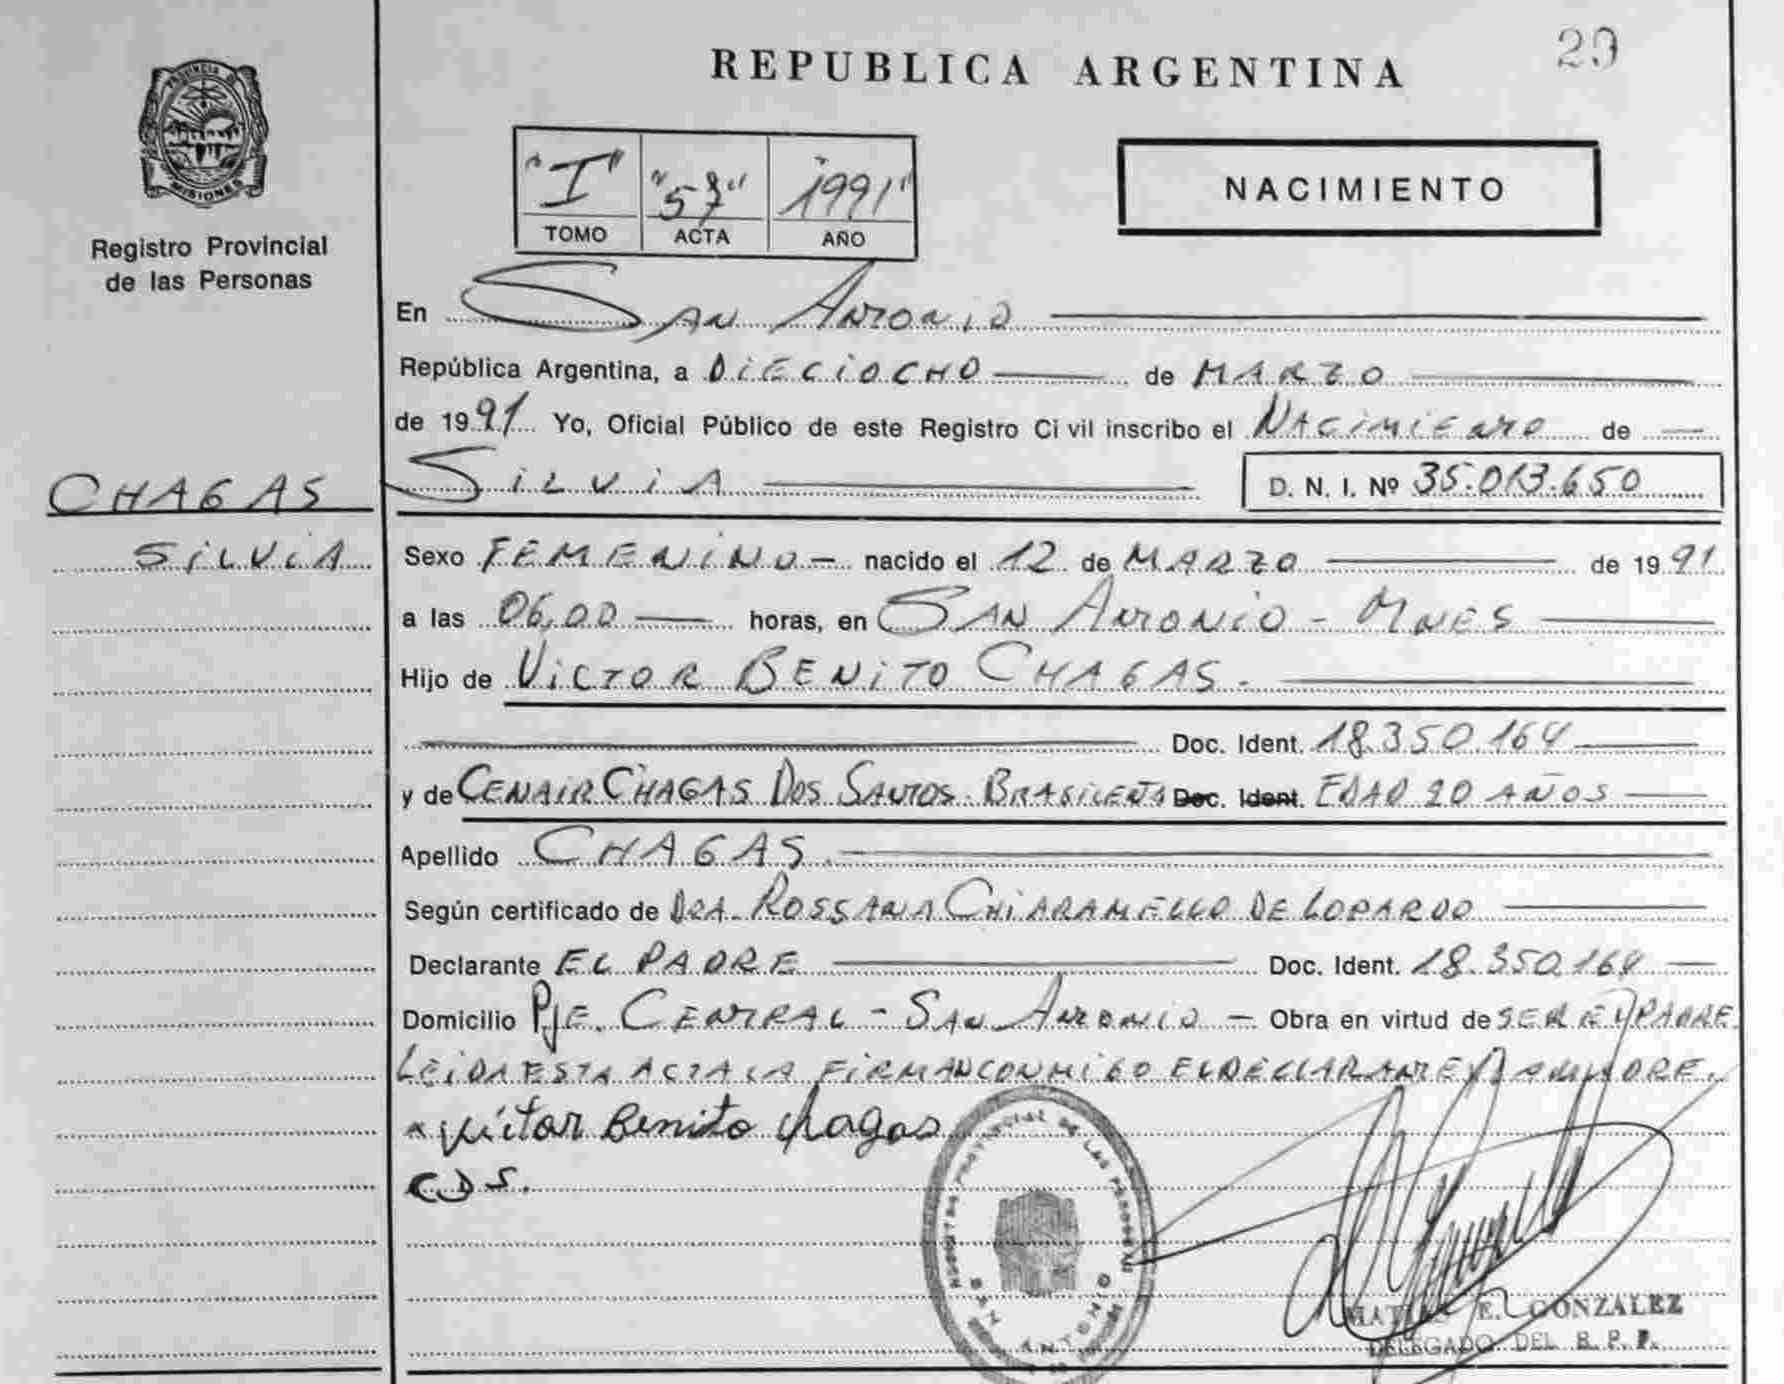 29
REPUBLICA ARGENTINA
PROVINCIA D
MISIONES
Registro Provincial
de las Personas
"I" "57" "1991"
TOMO ACTA AÑO
NACIMIENTO
En SAN ANTONIO
República Argentina, a DIECIOCHO de MARZO
de 1991 Yo, Oficial Público de este Registro Civil inscribo el NACIMIENTO de
CHAGAS
SILVIA D. N. I. Nº 35.013.650
SILVIA
Sexo FEMENINO - nacido el 12 de MARZO de 1991
a las 06,00 horas, en SAN ANTONIO - MNES
Hijo de VICTOR BENITO CHAGAS.
Doc. Ident. 18.350.164
y de CENAIR CHAGAS DOS SANTOS. BRASILEÑA Doc. Ident. EDAD 20 AÑOS
Apellido CHAGAS.
Según certificado de DRA. ROSSANA CHIARAMELLO DE LOPARDO
Declarante EL PADRE Doc. Ident. 18.350.164
Domicilio PJE. CENTRAL - SAN ANTONIO - Obra en virtud de SER EL PADRE
LEIDA ESTA ACTA LA FIRMAN CONMIGO EL DECLARANTE Y LA MADRE.
x Víctor Benito chagas
C D S.
PROVINCIAL DE LAS PERSONAS
SAN ANTONIO
E. GONZALEZ
DELEGADO DEL R. P. P.